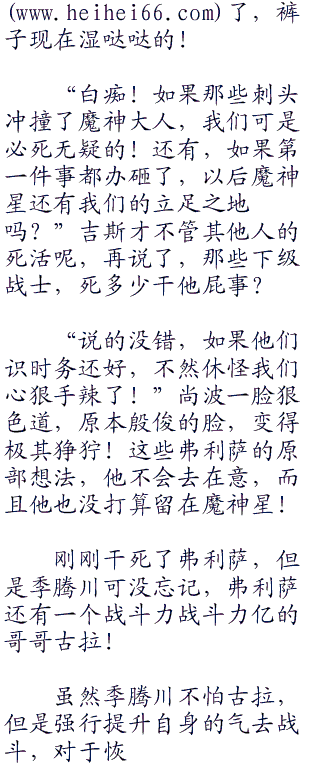 (www.heihei66.com)了，裤
子现在湿哒哒的！
“白痴！如果那些刺头
冲撞了魔神大人，我们可是
必死无疑的！还有，如果第
一件事都办砸了，以后魔神
星还有我们的立足之地
吗？”吉斯才不管其他人的
死活呢，再说了，那些下级
战士，死多少干他屁事？
“说的没错，如果他们
识时务还好，不然休怪我们
心狠手辣了！”尚波一脸狠
色道，原本殷俊的脸，变得
极其狰狞！这些弗利萨的原
部想法，他不会去在意，而
且他也没打算留在魔神星！
刚刚干死了弗利萨，但
是季腾川可没忘记，弗利萨
还有一个战斗力战斗力亿的
哥哥古拉！
虽然季腾川不怕古拉，
但是强行提升自身的气去战
斗，对于恢